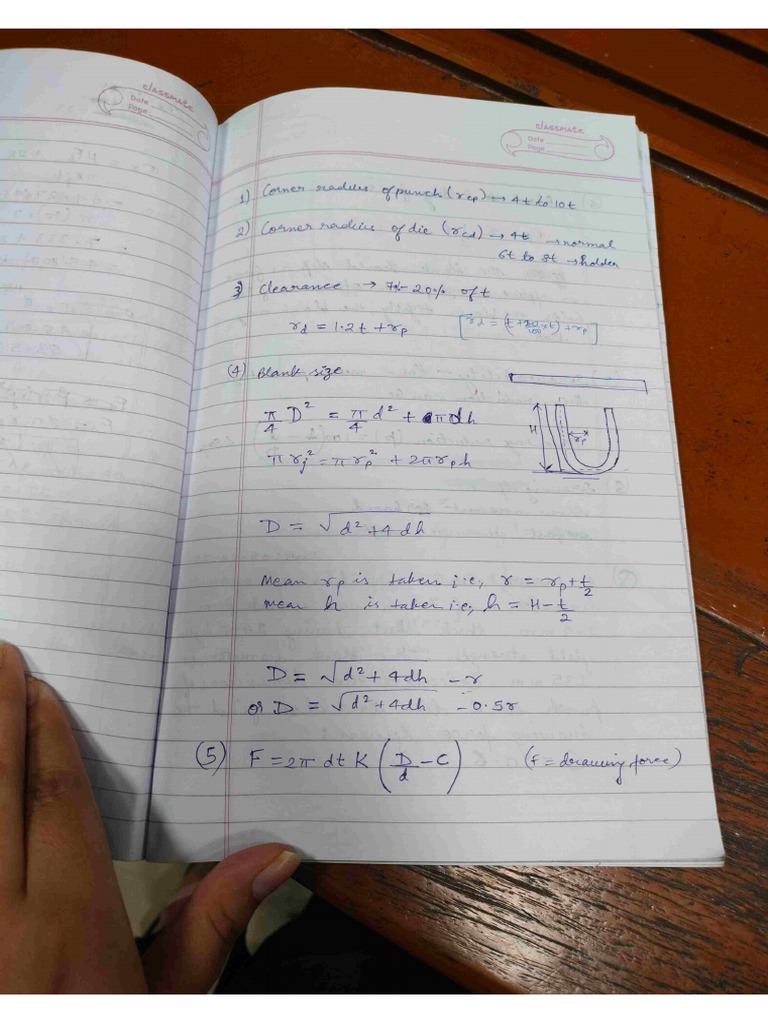 classmate
Date
Page
classmate
Date
Page
1) Corner radius of punch (rcp) → 4t to 10t
2) Corner radius of die (rcd) → 4t → normal
6t to 8t → holder
3) Clearance → 7% - 20% of t
r_d = 1.2t + r_p [r_d = (t + 20/100 × t) + r_p]
(4) Blank size
π/4 D² = π/4 d² + πdh
H
r_p
π r_j² = π r_p² + 2π r_p h
D = √(d² + 4dh)
Mean r_p is taken i.e., r = r_p + t/2
mean h is taken i.e, h = H - t/2
D = √(d² + 4dh) - r
or D = √(d² + 4dh) - 0.5r
(5) F = 2π dt K (D/d - C) (F = drawing force)